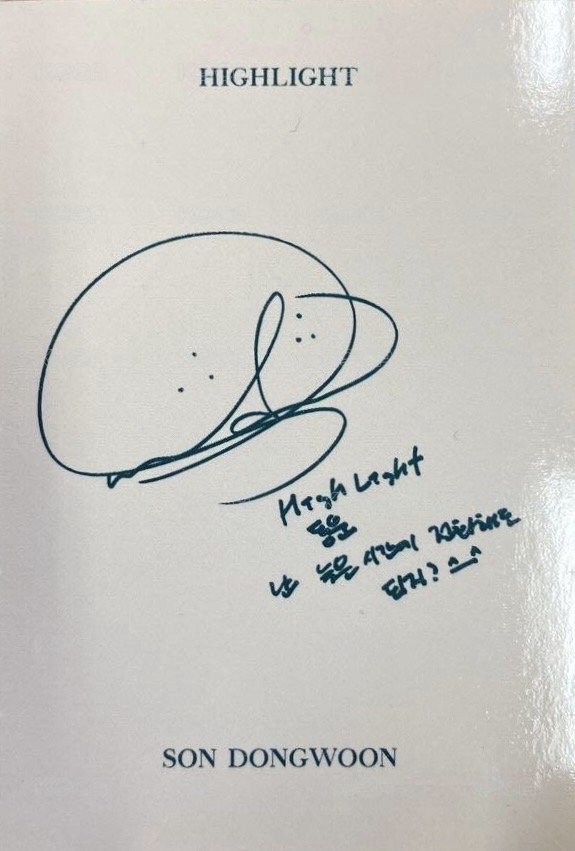 HIGHLIGHT
HighLight
동운
난 늦은 시간에 전화해도
되지? ^_^
SON DONGWOON